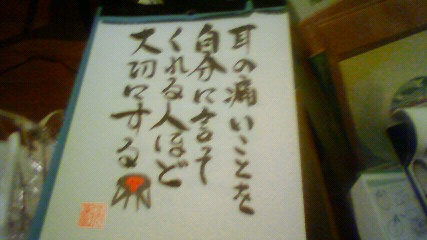 耳の痛いことを
自分に言って
くれる人ほど
大切にする